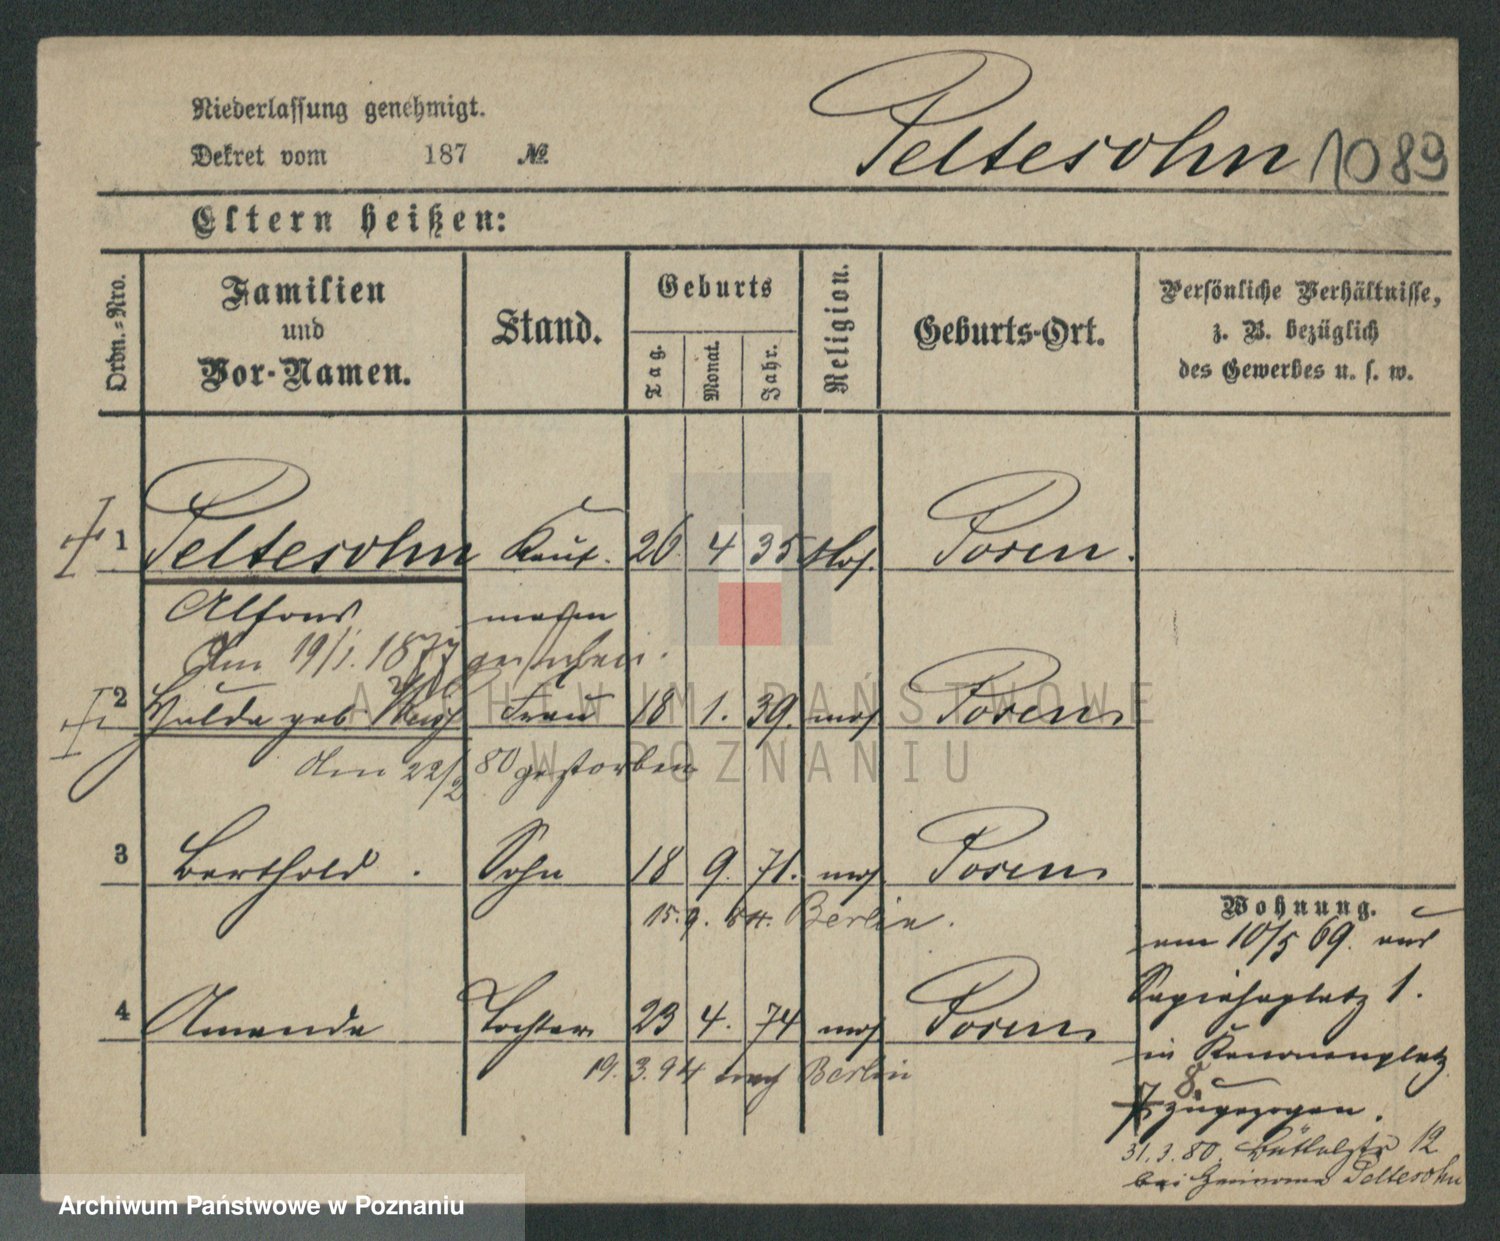 Niederlassung genehmigt.
Dekret vom 187 №
Peltesohn 1089
Eltern heißen:
Ordn.-Nro.
Familien und Vor-Namen.
Stand.
Geburts
Tag. Monat. Jahr.
Religion.
Geburts-Ort.
Persönliche Verhältnisse,
z. B. bezüglich
des Gewerbes u. s. w.
1 Peltesohn Kauf. 26 4 35 Mos. Posen.
Alfons
Am 19/1. 1877
2 Hulda geb. Frau 18 1. 39. mos Posen
Am 22/2 80 gestorben
3 Berthold. Sohn 18 9. 71. mos. Posen
15. 9. 84. Berlin.
4 Amanda Tochter 23 4. 74 mos Posen
19. 3. 94 nach Berlin
Wohnung.
am 10/5 69. aus
Sapiehaplatz 1.
in Kanonenplatz
8.
7 zugezogen.
31. 3. 80. Büttelstr 12
bei Peltesohn
ARCHIWUM PAŃSTWOWE
W POZNANIU
Archiwum Państwowe w Poznaniu